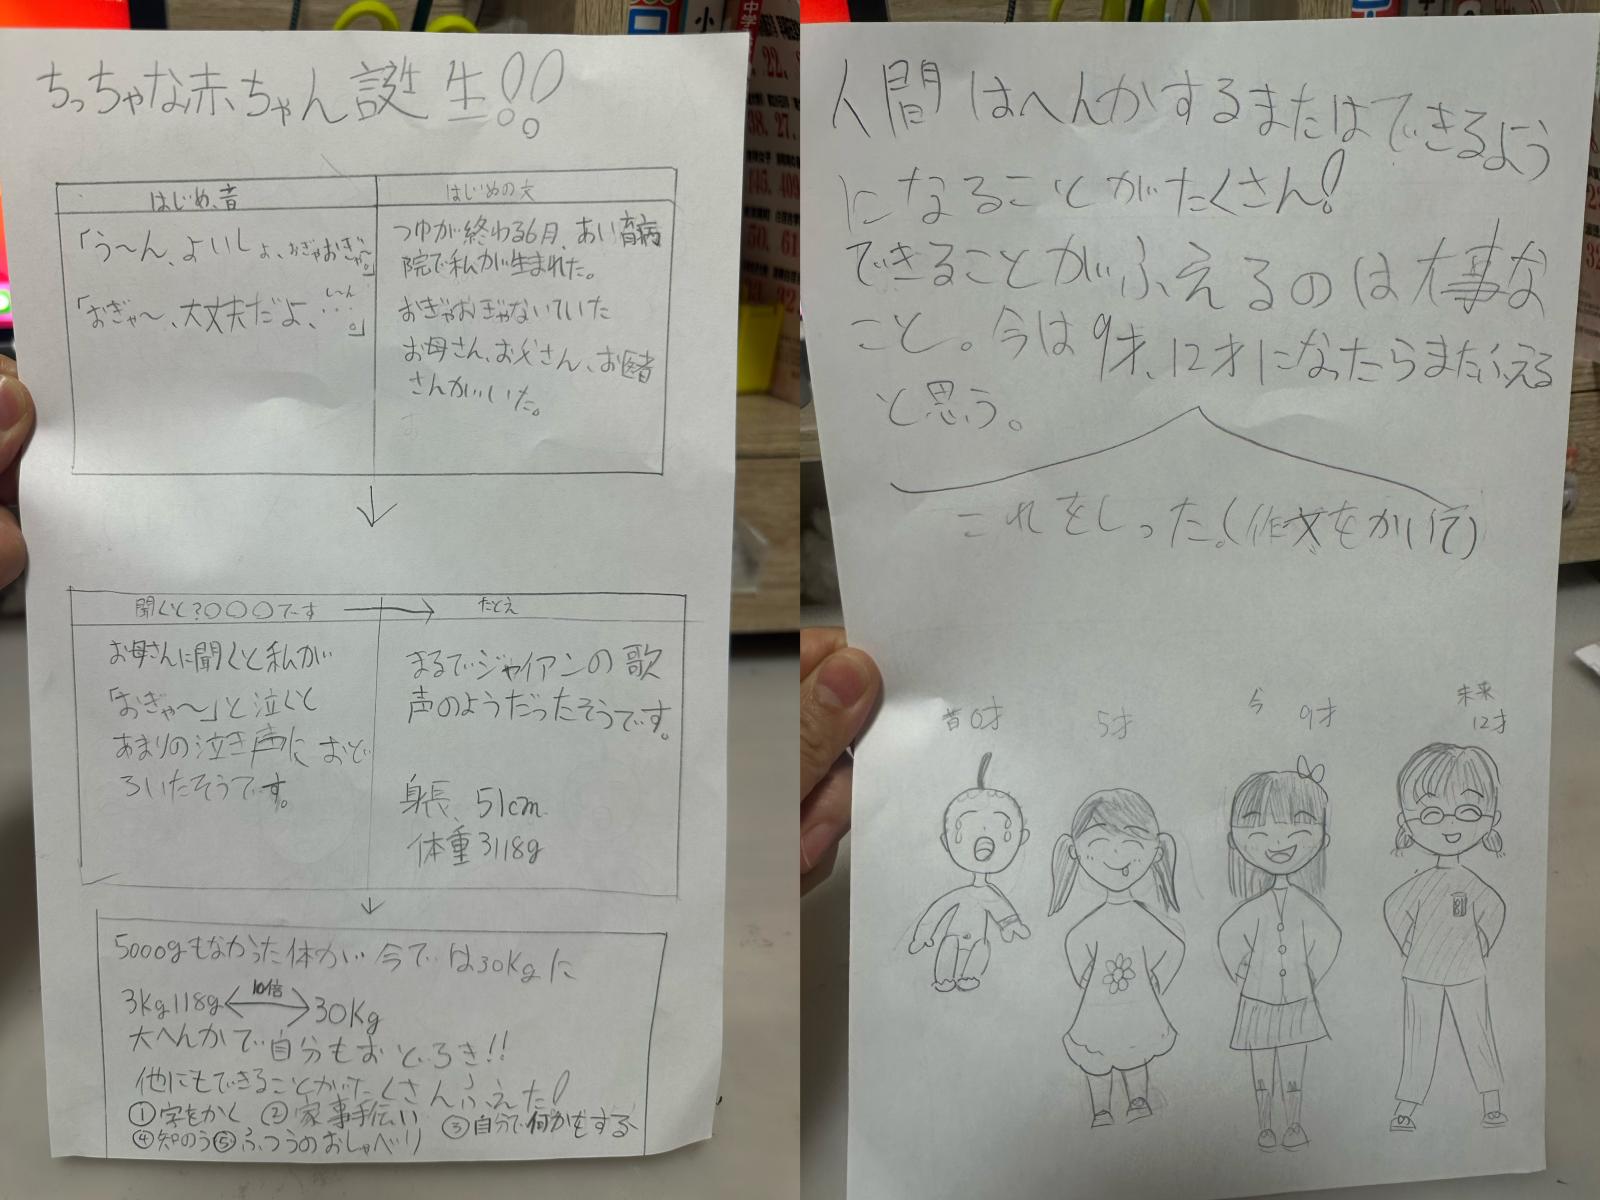 ちっちゃな赤ちゃん誕生!!
はじめ、音
「う〜ん、よいしょ、おぎゃおぎゃ〜。」
「おぎゃ〜、大丈夫だよ、し〜ん…。」
はじめの文
つゆが終わる6月、あい育病
院で私が生まれた。
おぎゃおぎゃないていた
お母さん、お父さん、お医者
さんがいた。
聞くと?〇〇〇です
たとえ
お母さんに聞くと私が
「おぎゃ〜」と泣くと
あまりの泣き声におど
ろいたそうです。
まるでジャイアンの歌
声のようだったそうです。
身長、51cm
体重3118g
5000gもなかった体が今では30Kgに
3Kg118g 10倍 30Kg
大へんかで自分もおどろき!!
他にもできることがたくさんふえた!
①字をかく ②家事手伝い ③自分で何かをする
④知のう⑤ふつうのおしゃべり
人間はへんかするまたはできるよう
になることがたくさん!
できることがふえるのは大事な
こと。今は9才、12才になったらまたふえる
と思う。
これをしった。(作文をかいて)
昔0才
5才
今 9才
未来
12才